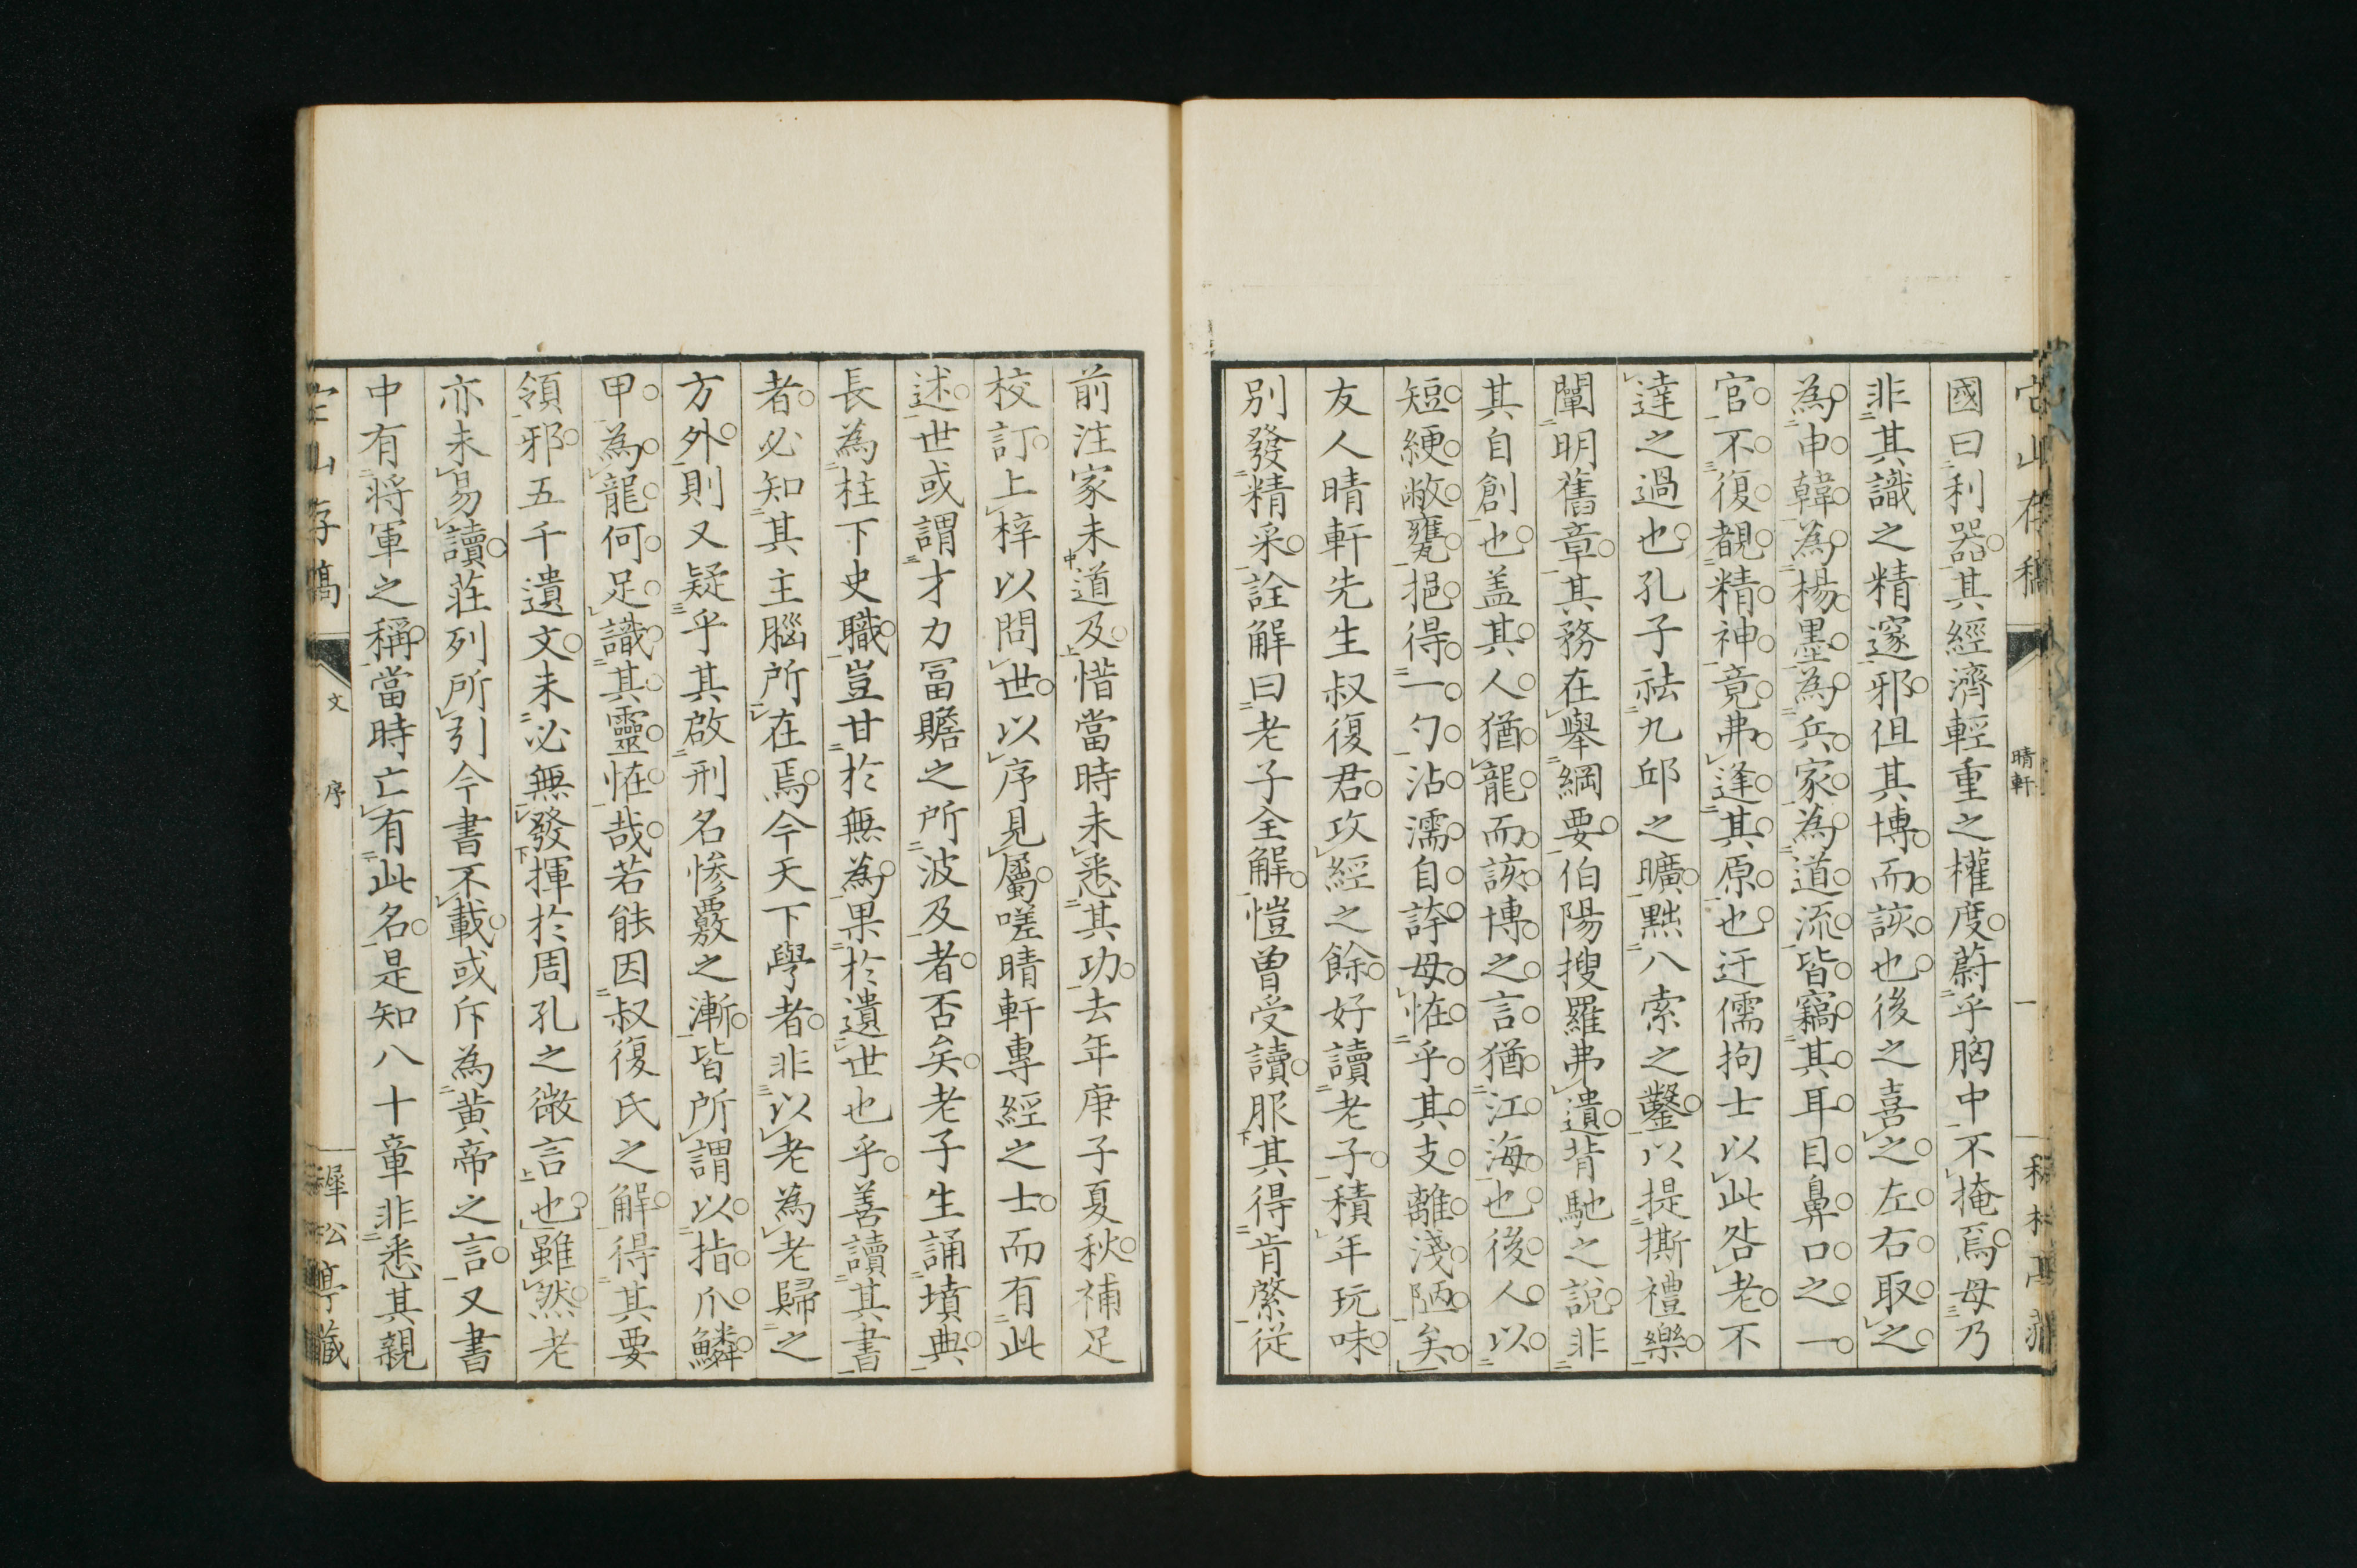 晴軒
一
國曰利器其經濟輕重之權度蔚乎胸中不掩焉毋乃
非其識之精邃邪但其博而該也後之喜之左右取之
為申韓為楊墨為兵家為道流皆竊其耳目鼻口之一
官不復覩精神竟弗逢其原也迂儒拘士以此咎老不
達之過也孔子祛九邱之曠黜八索之鑿以提撕禮樂
闡明舊章其務在舉綱要伯陽搜羅弗遺背馳之說非
其自創也盖其人猶龍而該博之言猶江海也後人以
短綆敝甕挹得一勺沾濡自誇毋恠乎其支離淺陋矣
友人晴軒先生叔復君攻經之餘好讀老子積年玩味
別發精采詮解曰老子全解愷曾受讀服其得肯綮從
前注家未道及惜當時未悉其功去年庚子夏秋補足
校訂上梓以問世以序見屬嗟晴軒專經之士而有此
述世或謂才力冨贍之所波及者否矣老子生誦墳典
長為柱下史職豈甘於無為果於遺世也乎善讀其書
者必知其主腦所在焉今天下學者非以老為老歸之
方外則又疑乎其啟刑名慘覈之漸皆所謂以指爪鱗
甲為龍何足識其靈恠哉若能因叔復氏之解得其要
領邪五千遺文未必無發揮於周孔之微言也雖然老
亦未易讀莊列所引今書不載或斥為黃帝之言又書
中有將軍之稱當時亡有此名是知八十章非悉其親
文
序